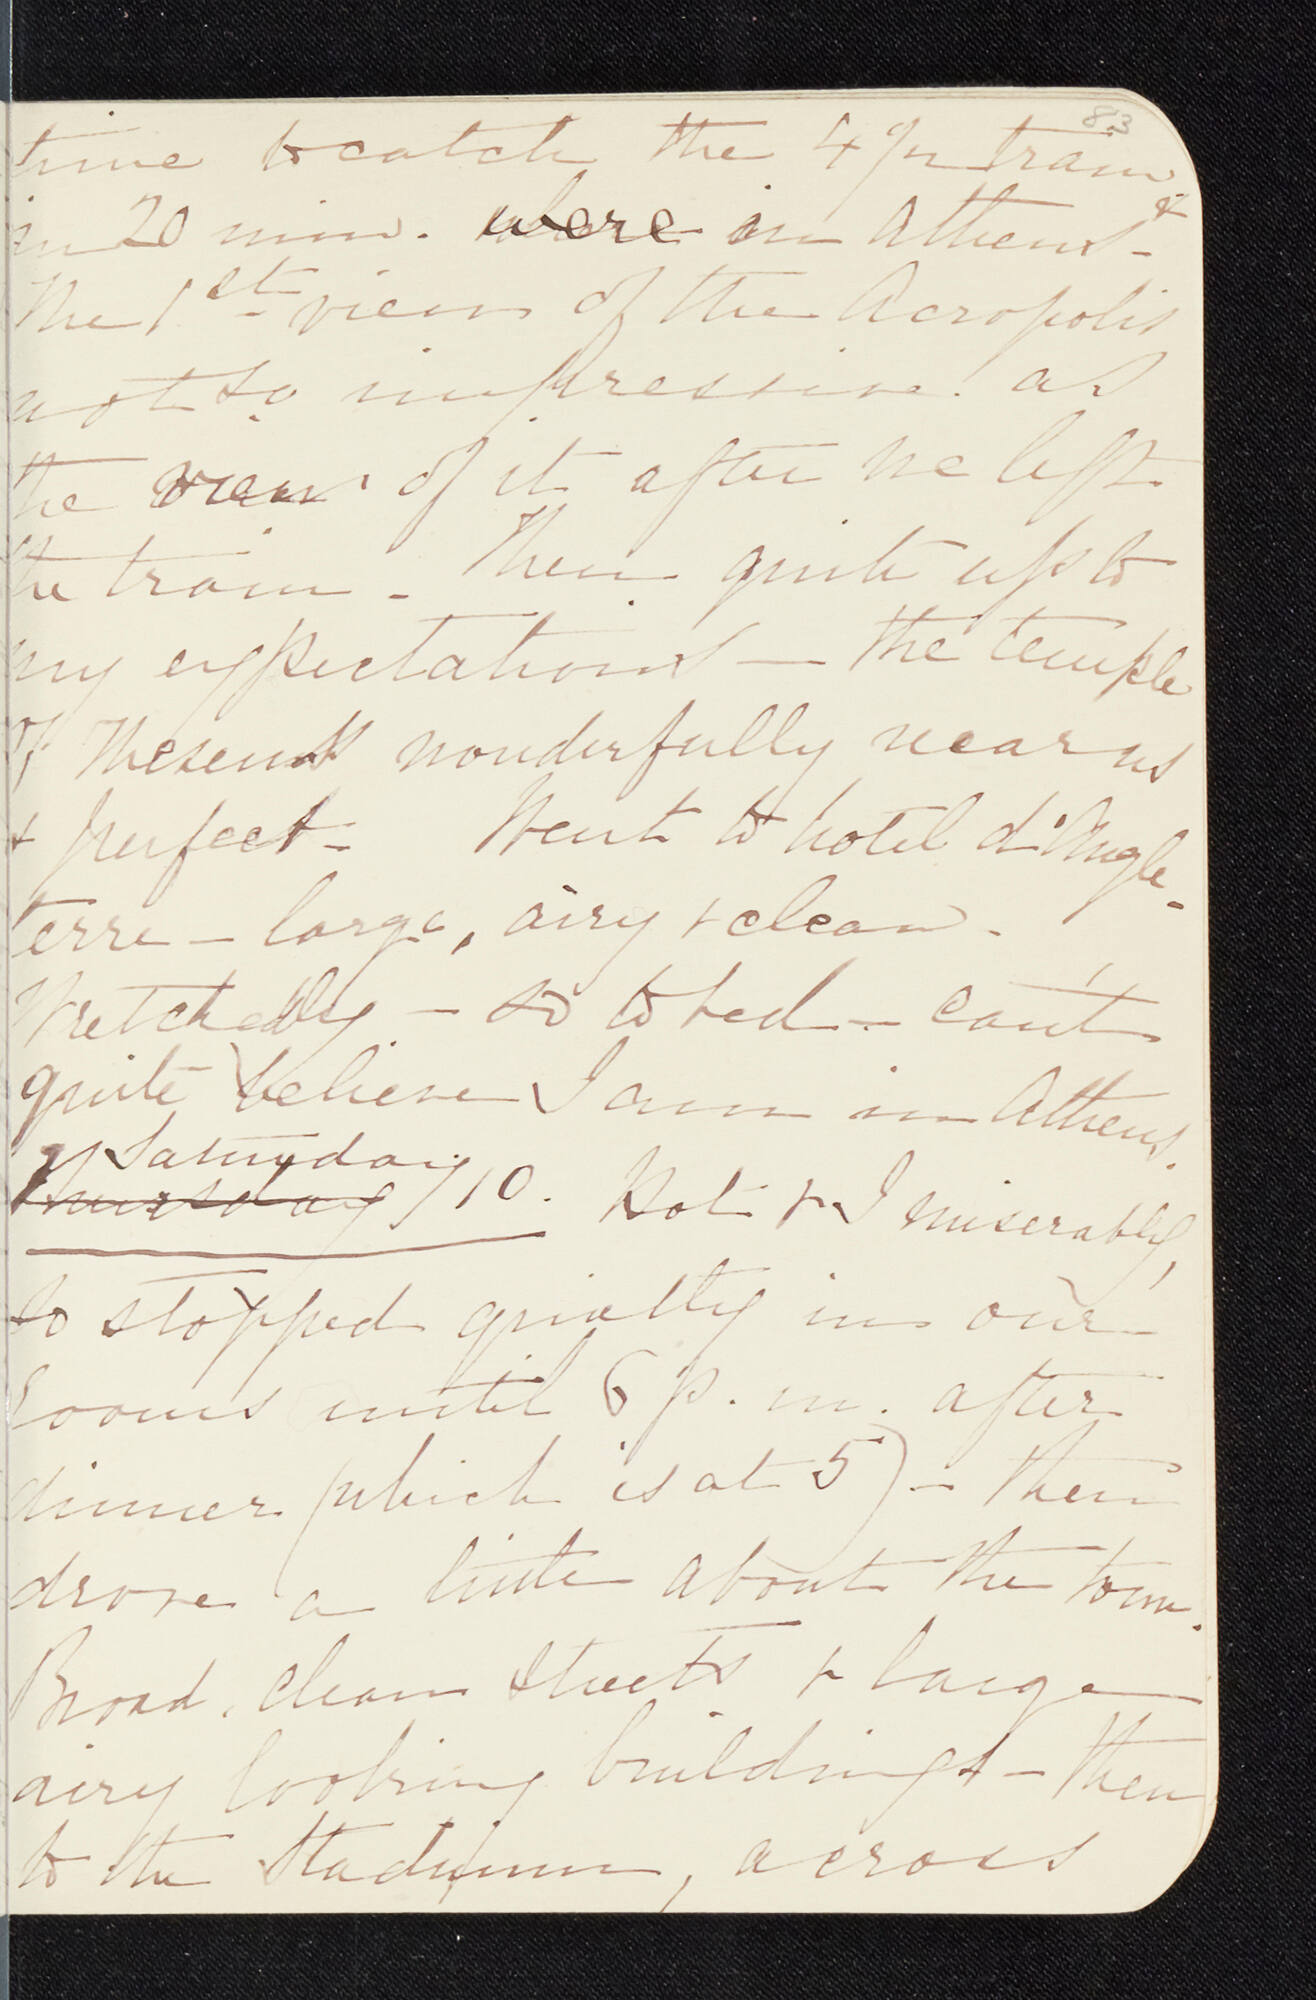 83
time to catch the 4 pm train &
in 20 min. were in Athens -
The 1st view of the Acropolis
not so impressive as
the view of it after we left
the train - Then quite up to
my expectations - the temple
of Theseus wonderfully near us
& perfect - Went to hotel d'Angle-
terre - large, airy & clean -
Wretchedly - so to bed - can't
quite believe I am in Athens.
Saturday
Thursday / 10. Hot & I miserably,
so stopped quietly in our
rooms until 6 p.m. after
dinner (which is at 5) - then
drove a little about the town.
Broad, clean streets & large
airy looking buildings - then
to the Stadium, across